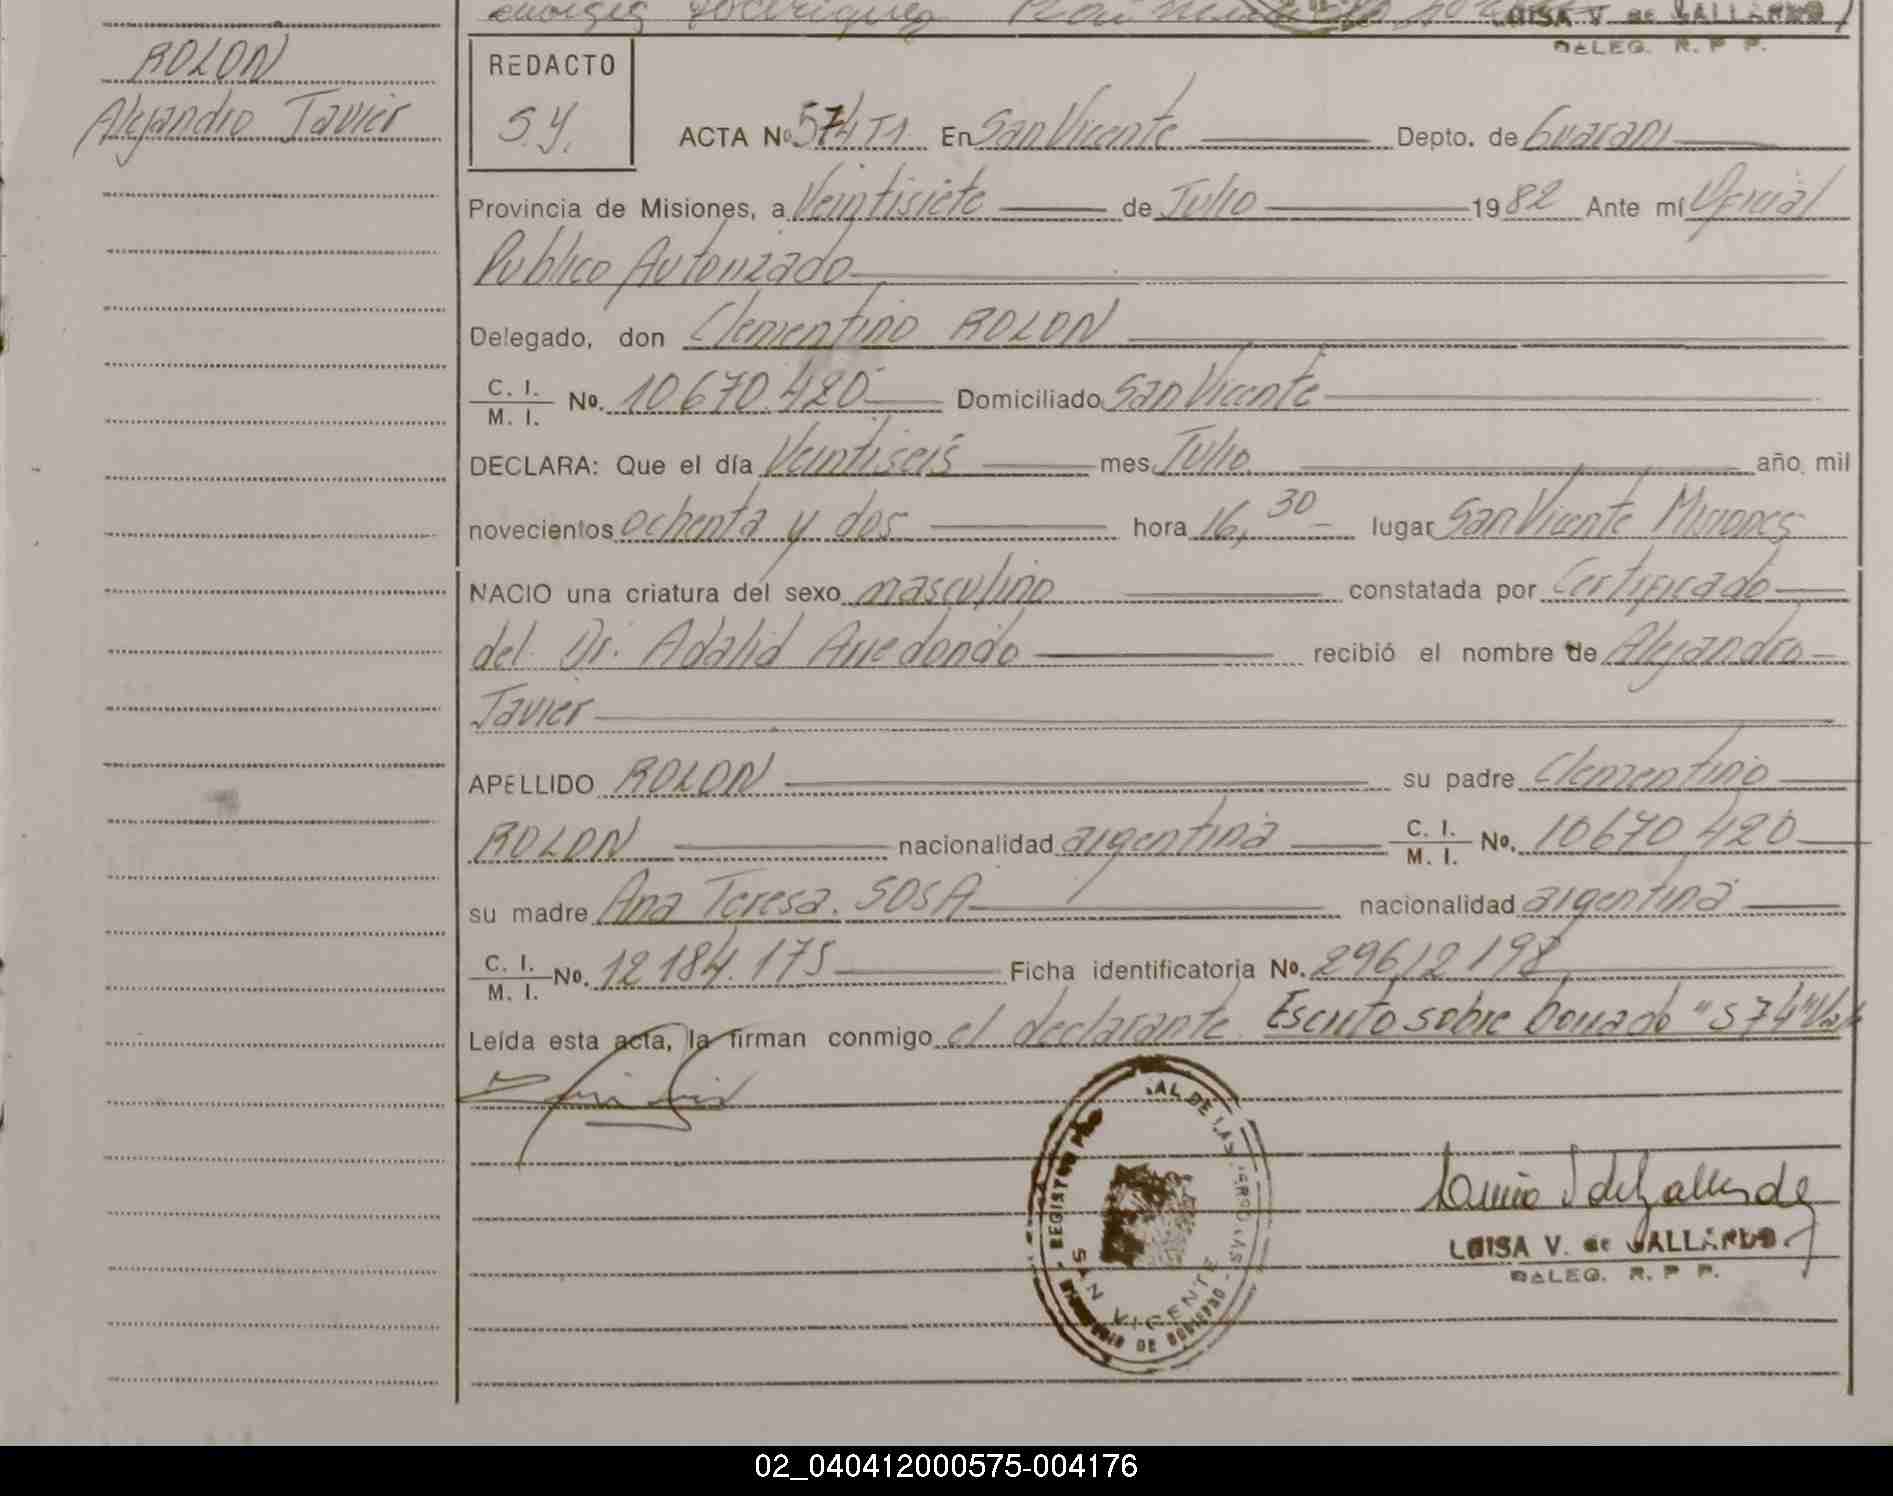 LUISA V. de GALLARDO
DELEG. R. P. P.
ROLON
Alejandro Javier
REDACTO
S.Y.
ACTA No 574 T1. En San Vicente Depto. de Guarani
Provincia de Misiones, a Veintisiete de Julio 1982 Ante mí Oficial
Publico Autorizado
Delegado, don Clementino ROLON
C. I. / M. I. No. 10670.420 Domiciliado San Vicente
DECLARA: Que el día Veintiseis mes Julio año mil
novecientos ochenta y dos hora 16,30 lugar San Vicente Misiones
NACIO una criatura del sexo masculino constatada por Certificado
del Dr. Adalid Arredondo recibió el nombre de Alejandro
Javier
APELLIDO ROLON su padre Clementino
ROLON nacionalidad argentina C. I. / M. I. No. 10670.420
su madre Ana Teresa SOSA nacionalidad argentina
C. I. / M. I. No. 12184.175 Ficha identificatoria No. 29612198
Leída esta acta, la firman conmigo el declarante. Escrito sobre borrado "574" Vale
REGISTRO PRO AL DE LAS PERSONAS
SAN VICENTE
MINISTERIO DE GOBIERNO
LUISA V. de GALLARDO
DELEG. R. P. P.
02_040412000575-004176